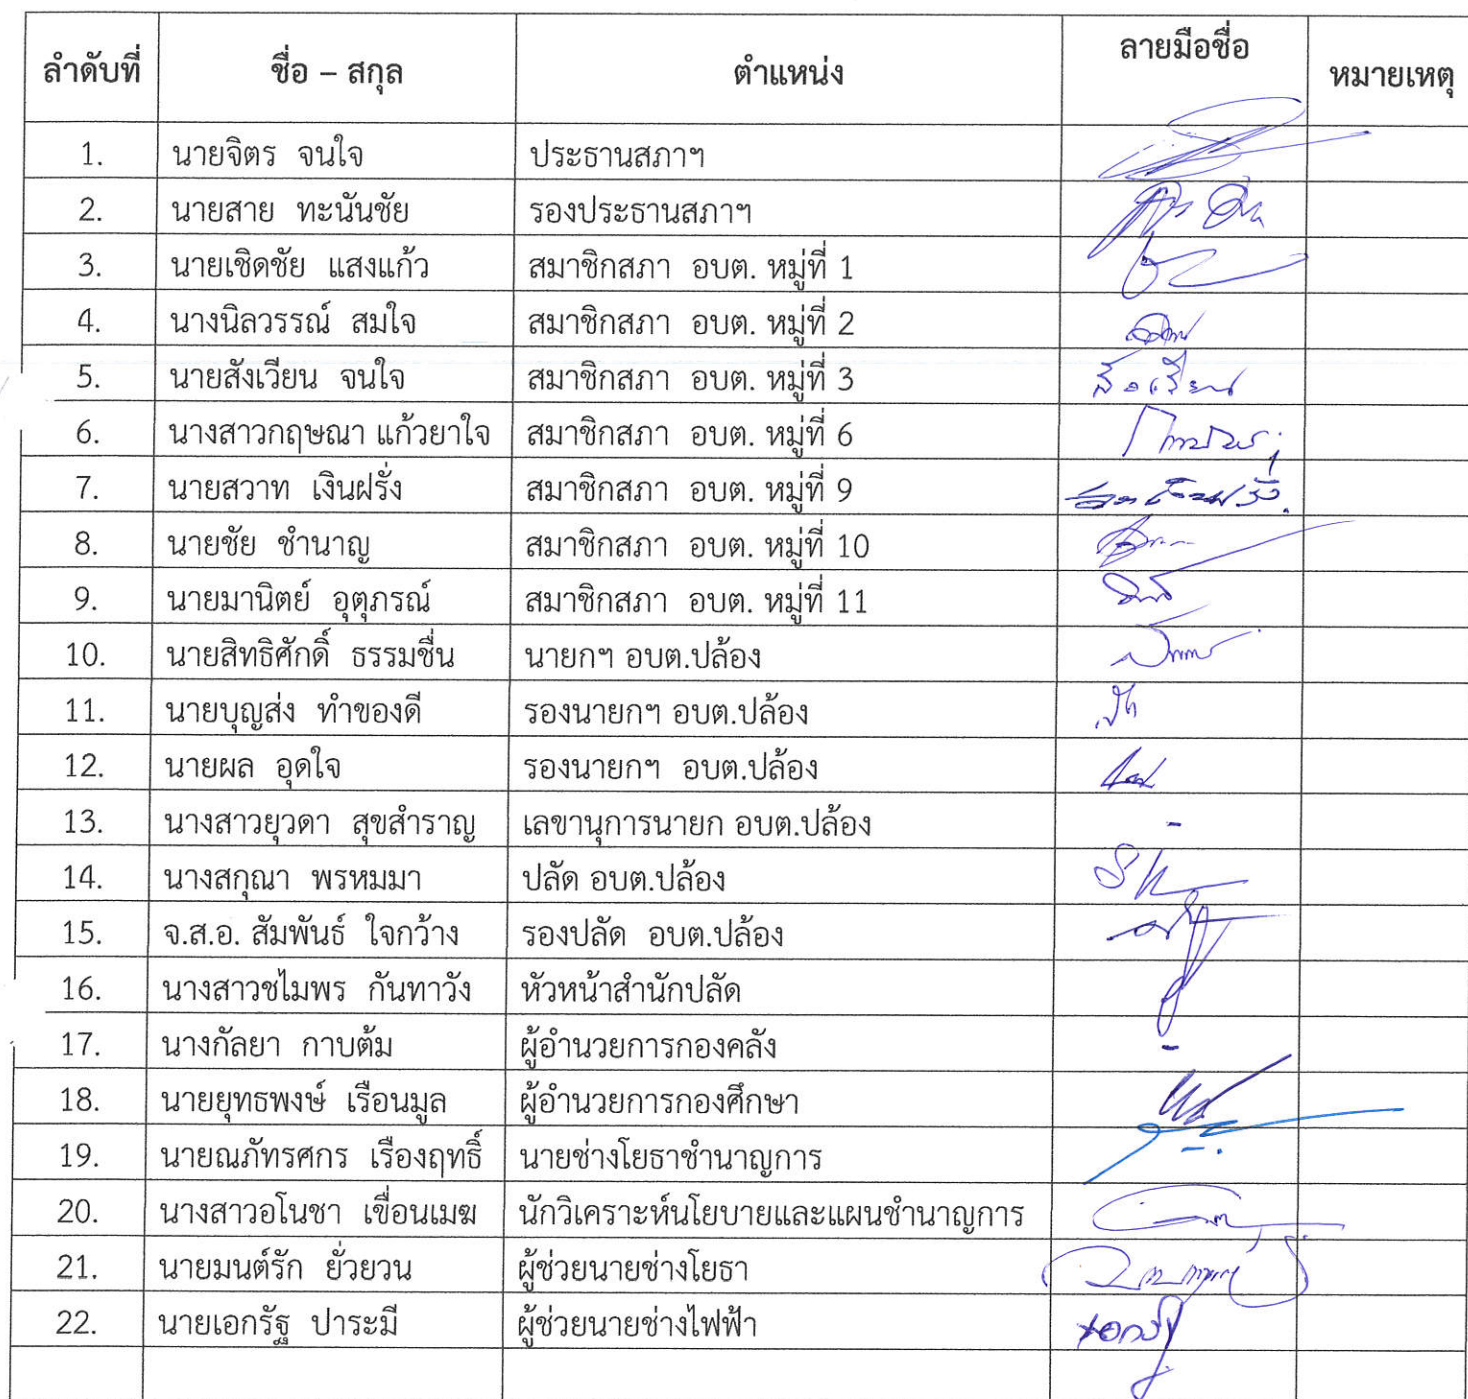 ลำดับที่ ชื่อ – สกุล ตำแหน่ง ลายมือชื่อ หมายเหตุ
1. นายจิตร จนใจ ประธานสภาฯ
2. นายสาย ทะนันชัย รองประธานสภาฯ
3. นายเชิดชัย แสงแก้ว สมาชิกสภา อบต. หมู่ที่ 1
4. นางนิลวรรณ์ สมใจ สมาชิกสภา อบต. หมู่ที่ 2
5. นายสังเวียน จนใจ สมาชิกสภา อบต. หมู่ที่ 3
6. นางสาวกฤษณา แก้วยาใจ สมาชิกสภา อบต. หมู่ที่ 6
7. นายสวาท เงินฝรั่ง สมาชิกสภา อบต. หมู่ที่ 9
8. นายชัย ชำนาญ สมาชิกสภา อบต. หมู่ที่ 10
9. นายมานิตย์ อุตุภรณ์ สมาชิกสภา อบต. หมู่ที่ 11
10. นายสิทธิศักดิ์ ธรรมชื่น นายกฯ อบต.ปล้อง
11. นายบุญส่ง ทำของดี รองนายกฯ อบต.ปล้อง
12. นายผล อุดใจ รองนายกฯ อบต.ปล้อง
13. นางสาวยุวดา สุขสำราญ เลขานุการนายก อบต.ปล้อง -
14. นางสกุณา พรหมมา ปลัด อบต.ปล้อง
15. จ.ส.อ. สัมพันธ์ ใจกว้าง รองปลัด อบต.ปล้อง
16. นางสาวชไมพร กันทาวัง หัวหน้าสำนักปลัด
17. นางกัลยา กาบต้ม ผู้อำนวยการกองคลัง -
18. นายยุทธพงษ์ เรือนมูล ผู้อำนวยการกองศึกษา
19. นายณภัทรศกร เรืองฤทธิ์ นายช่างโยธาชำนาญการ
20. นางสาวอโนชา เขื่อนเมฆ นักวิเคราะห์นโยบายและแผนชำนาญการ
21. นายมนต์รัก ยั่วยวน ผู้ช่วยนายช่างโยธา
22. นายเอกรัฐ ปาระมี ผู้ช่วยนายช่างไฟฟ้า